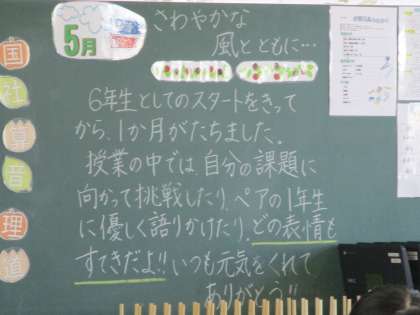 5月
さわやかな
風とともに…
6年生としてのスタートをきって
から、1か月がたちました。
授業の中では、自分の課題に
向かって挑戦したり、ペアの1年生
に優しく語りかけたり、どの表情も
すてきだよ!!いつも元気をくれて
ありがとう!!
国
社
算
音
理
道